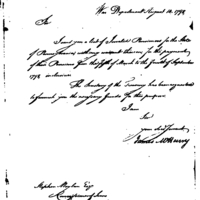 War Department August 14. 1798
Sir
I send you a list of Invalid Pensioners for the State
of Pennsylvania with any amount due on for the payment
of their Pensions from the fifth of March to the fourth of September
1798 inclusive.
The Secretary of the Treasury has been requested
to furnish you the necessary funds for this purpose
I am
Sir
your obed Servant
James McHenry
Stephen Moylan Esqr